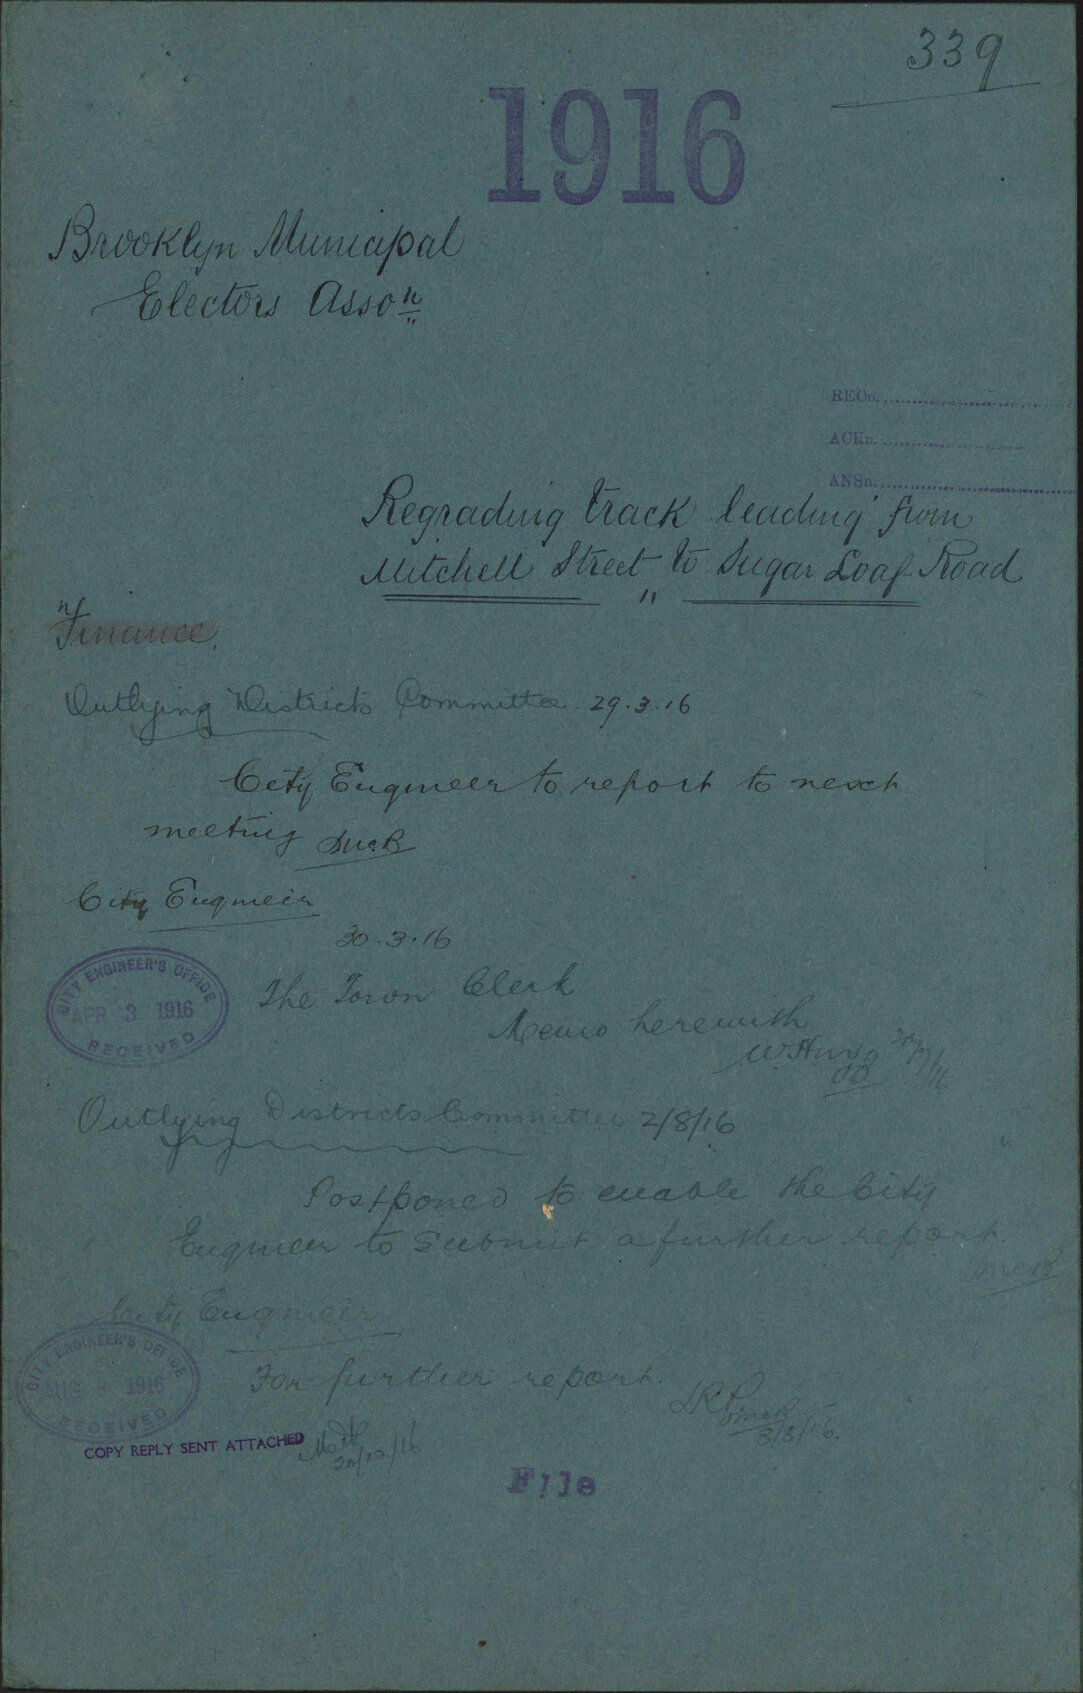 339
1916
Brooklyn Municipal
Electors Asson
RECD.
ACKD.
ANSD.
Regrading track leading from
Mitchell Street to Sugar Loaf Road
Finance
Outlying Districts Committee 29.3.16
City Engineer to report to next
meeting
City Engineer
30.3.16
CITY ENGINEER'S OFFICE
APR 3 1916
RECEIVED
The Town Clerk
Memo herewith
Outlying Districts Committee 2/8/16
Postponed to enable the City
Engineer to submit a further report.
City Engineer
CITY ENGINEER'S OFFICE
AUG 1916
RECEIVED
For further report.
8/8/16.
COPY REPLY SENT ATTACHED
20/12/16
File